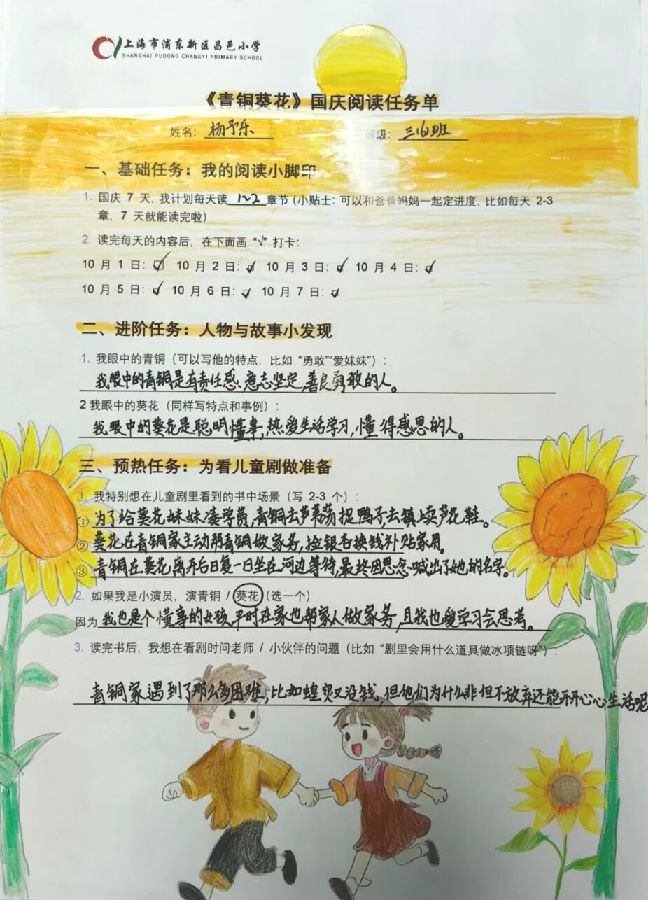 上海市浦东新区昌邑小学
SHANGHAI PUDONG CHANGYI PRIMARY SCHOOL
《青铜葵花》国庆阅读任务单
姓名：杨予乐 班级：三(6)班
一、基础任务：我的阅读小脚印
1. 国庆 7 天，我计划每天读 1~2 章节（小贴士：可以和爸爸妈妈一起定进度，比如每天 2-3
章，7 天就能读完啦）
2. 读完每天的内容后，在下面画“√”打卡：
10 月 1 日：√ 10 月 2 日：√ 10 月 3 日：√ 10 月 4 日：√
10 月 5 日：√ 10 月 6 日：√ 10 月 7 日：√
二、进阶任务：人物与故事小发现
1. 我眼中的青铜（可以写他的特点，比如“勇敢”“爱妹妹”）：
我眼中的青铜是有责任感、意志坚定、善良勇敢的人。
2 我眼中的葵花（同样写特点和事例）：
我眼中的葵花是聪明懂事，热爱生活学习，懂得感恩的人。
三、预热任务：为看儿童剧做准备
1. 我特别想在儿童剧里看到的书中场景（写 2-3 个）：
①为了给葵花妹妹凑学费，青铜去芦苇荡捉鸭子去镇上卖芦花鞋。
②葵花在青铜家主动帮青铜做家务，捡银杏换钱补贴家用。
③青铜在葵花离开后日复一日坐在河边等待，最终因思念喊出了她的名字。
2. 如果我是小演员，演青铜 / 葵花（选一个）
因为 我也是个懂事的女孩，平时在家也帮家人做家务，且我也爱学习会思考。
3. 读完书后，我想在看剧时问老师 / 小伙伴的问题（比如“剧里会用什么道具做冰项链呀”）：
青铜家遇到了那么多困难，比如蝗灾又没钱，但他们为什么非但不放弃还能开开心心生活呢